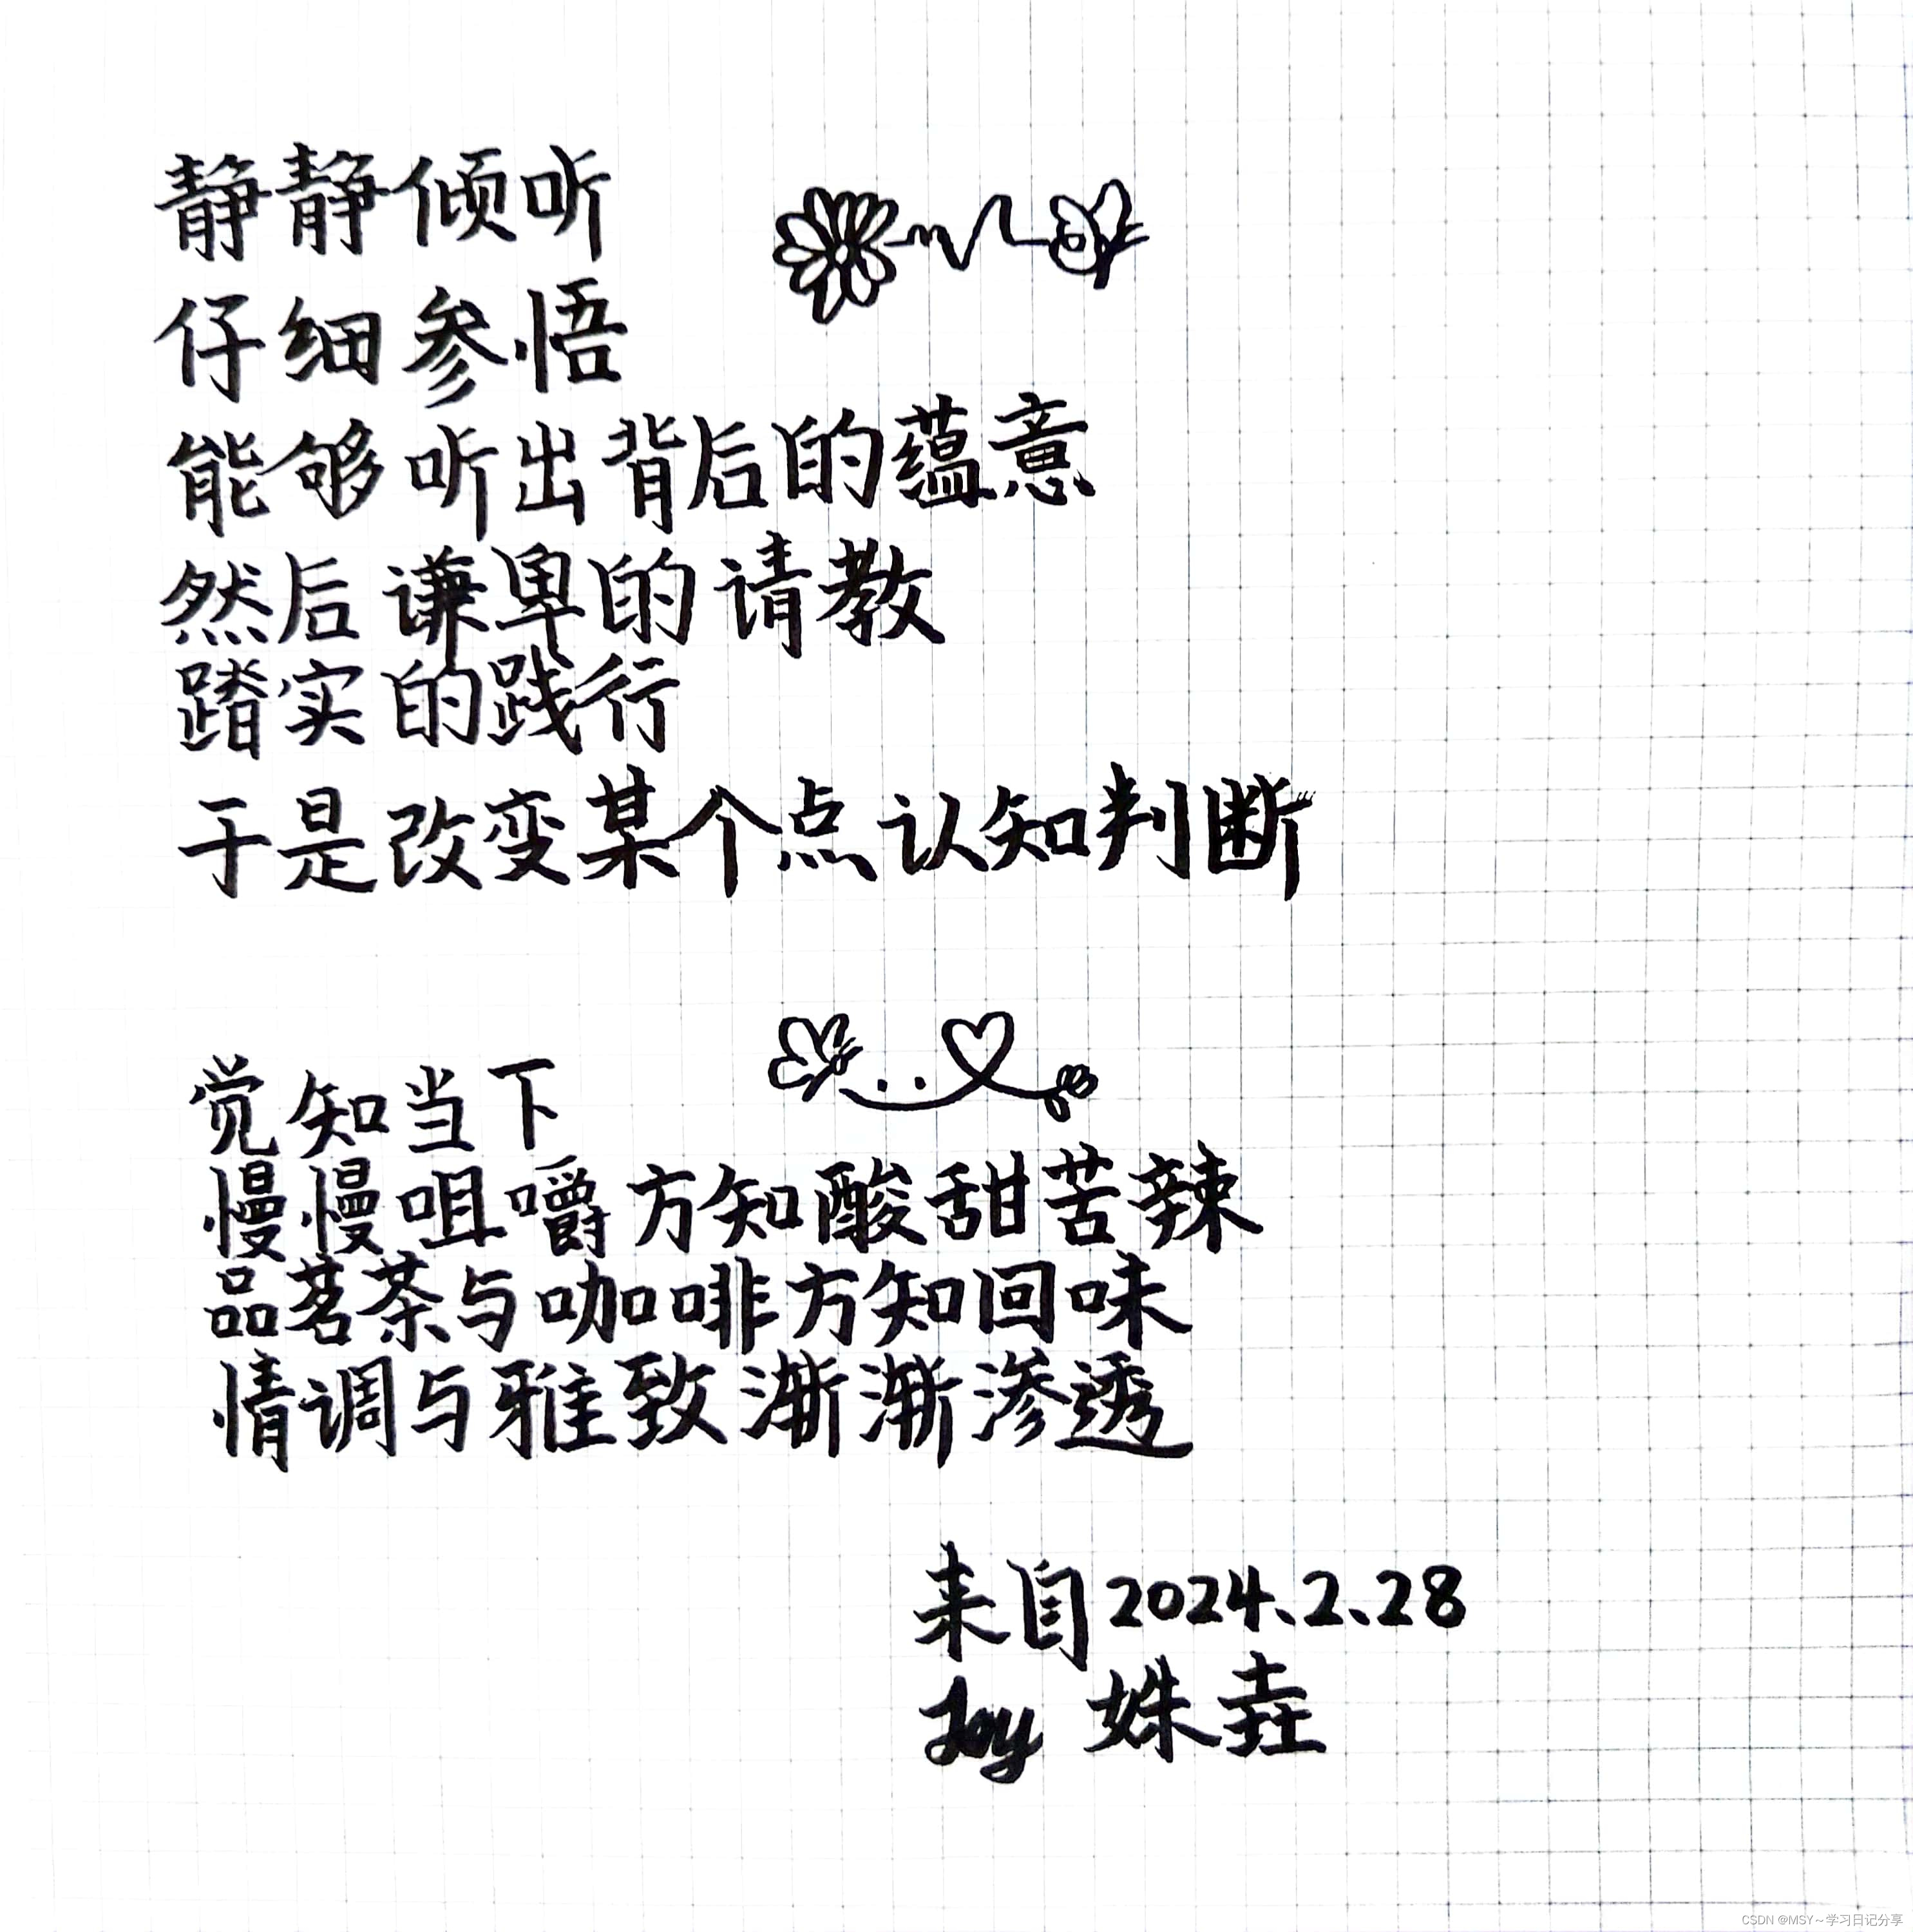 静静倾听
仔细参悟
能够听出背后的蕴意
然后谦卑的请教
踏实的践行
于是改变某个点认知判断
觉知当下
慢慢咀嚼方知酸甜苦辣
品茗茶与咖啡方知回味
情调与雅致渐渐渗透
来自2024.2.28
Joy 姝垚
CSDN @MSY~学习日记分享